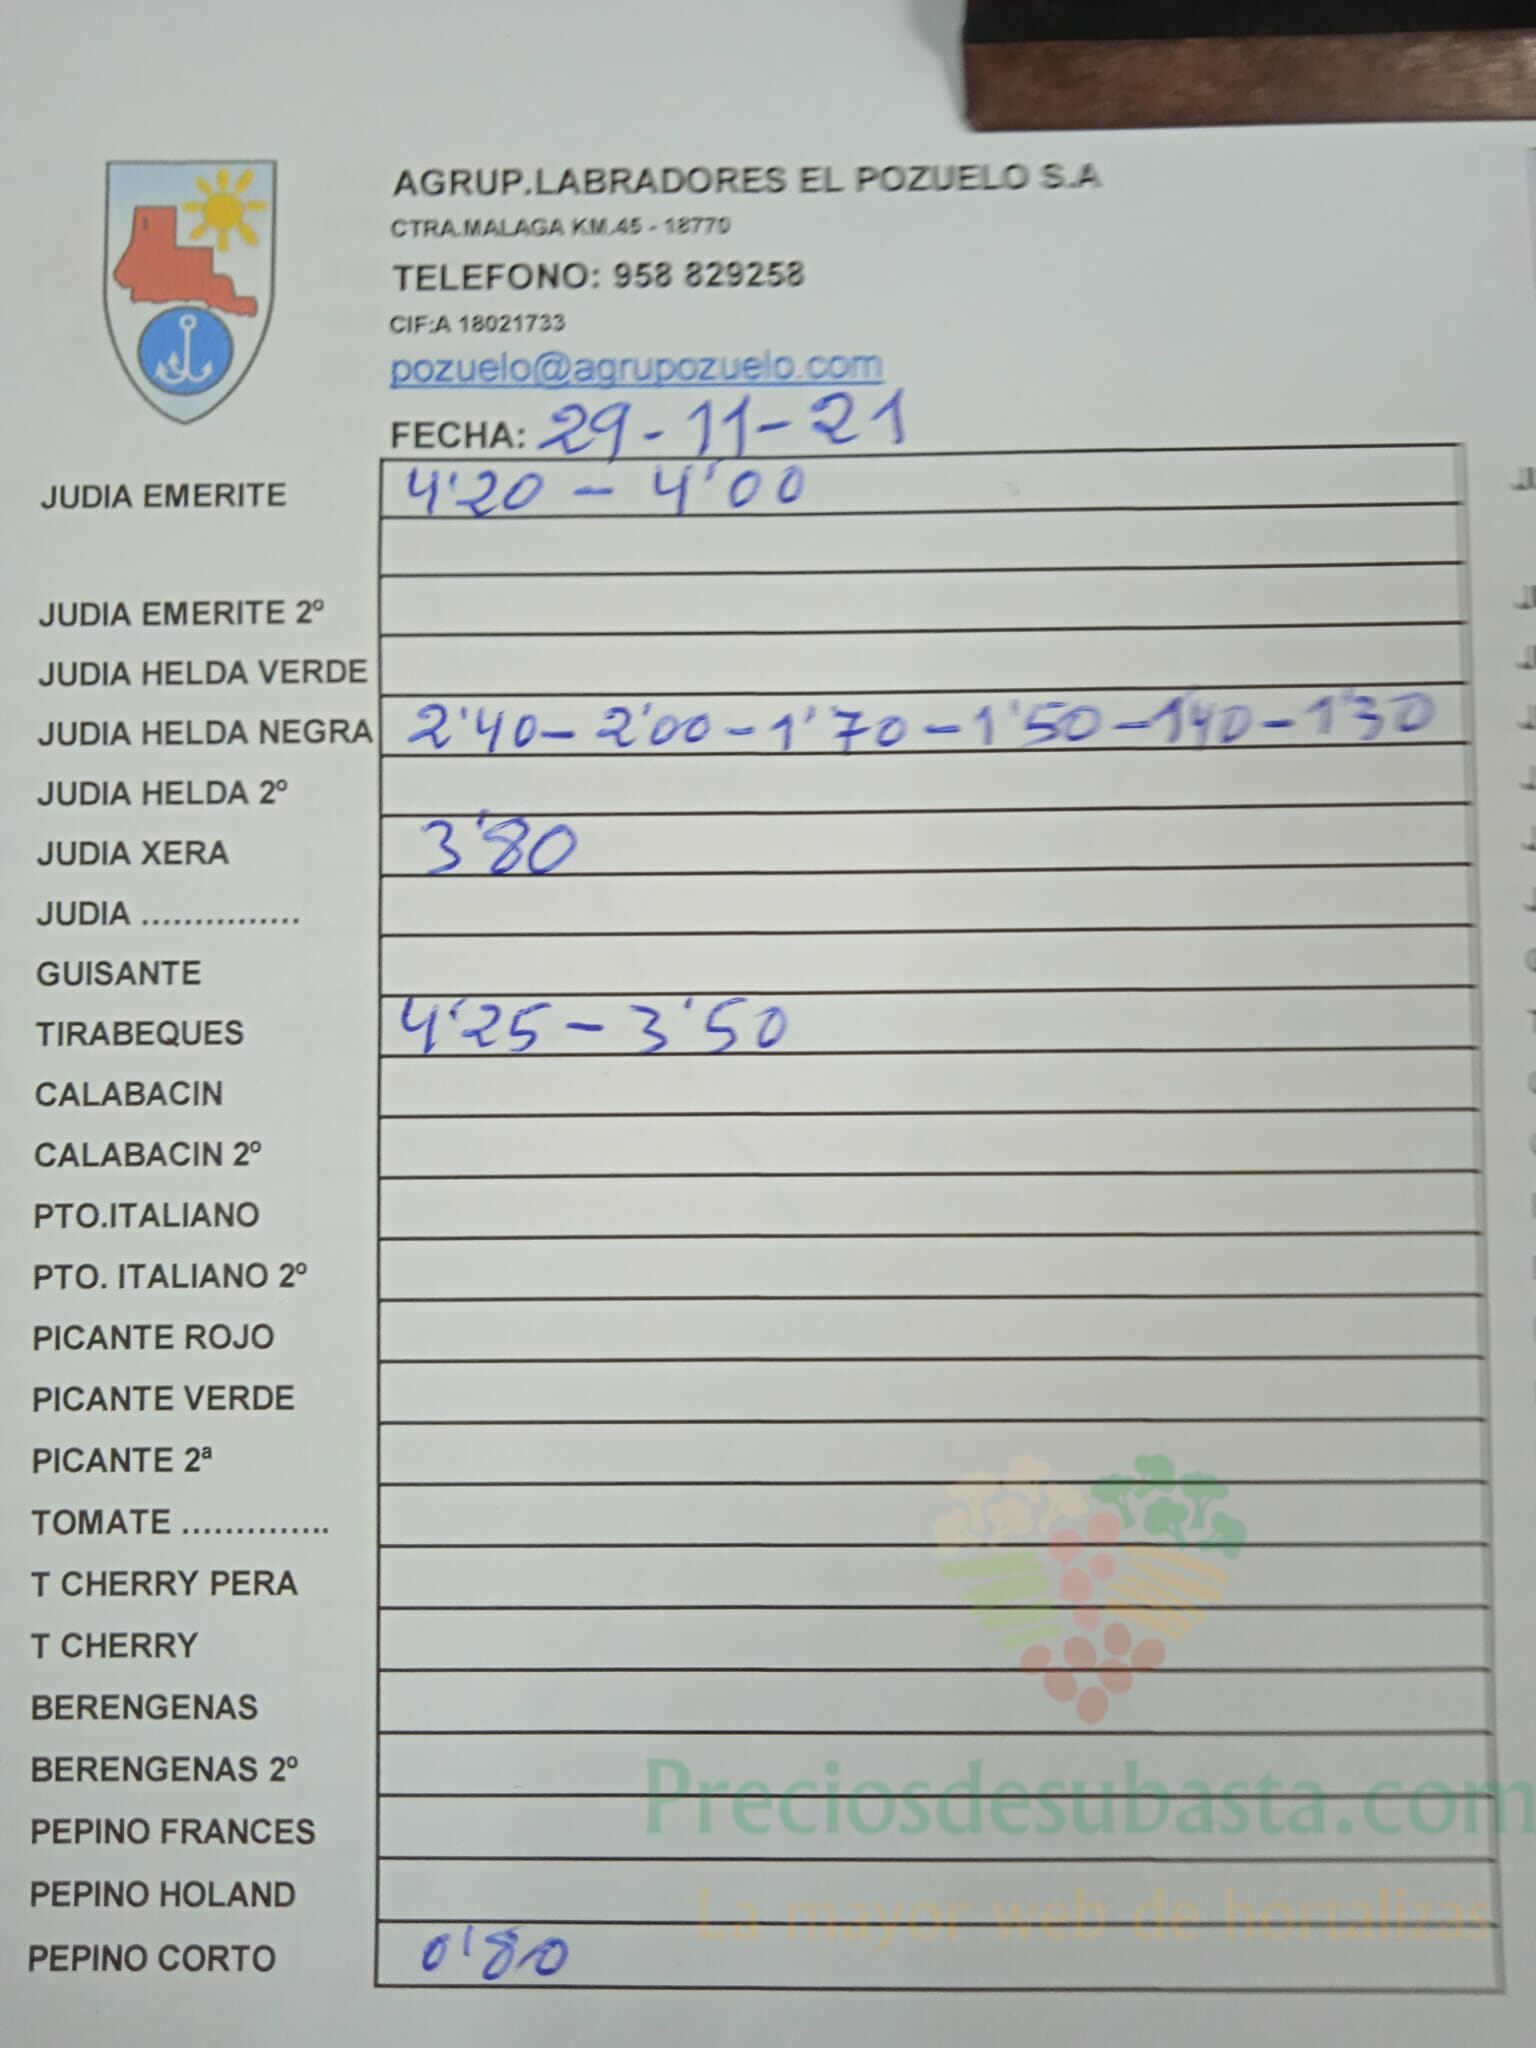 AGRUP.LABRADORES EL POZUELO S.A
CTRA.MALAGA KM.45 - 18770
TELEFONO: 958 829258
CIF:A 18021733
pozuelo@agrupozuelo.com
FECHA: 29-11-21
JUDIA EMERITE 4'20 - 4'00
JUDIA EMERITE 2º
JUDIA HELDA VERDE
JUDIA HELDA NEGRA 2'40 - 2'00 - 1'70 - 1'50 - 1'40 - 1'30
JUDIA HELDA 2º
JUDIA XERA 3'80
JUDIA ...............
GUISANTE
TIRABEQUES 4'25 - 3'50
CALABACIN
CALABACIN 2º
PTO.ITALIANO
PTO. ITALIANO 2º
PICANTE ROJO
PICANTE VERDE
PICANTE 2ª
TOMATE ..............
T CHERRY PERA
T CHERRY
BERENGENAS
BERENGENAS 2º
Preciosdesubasta.com
PEPINO FRANCES
PEPINO HOLAND
La mayor web de hortalizas
PEPINO CORTO 0'80